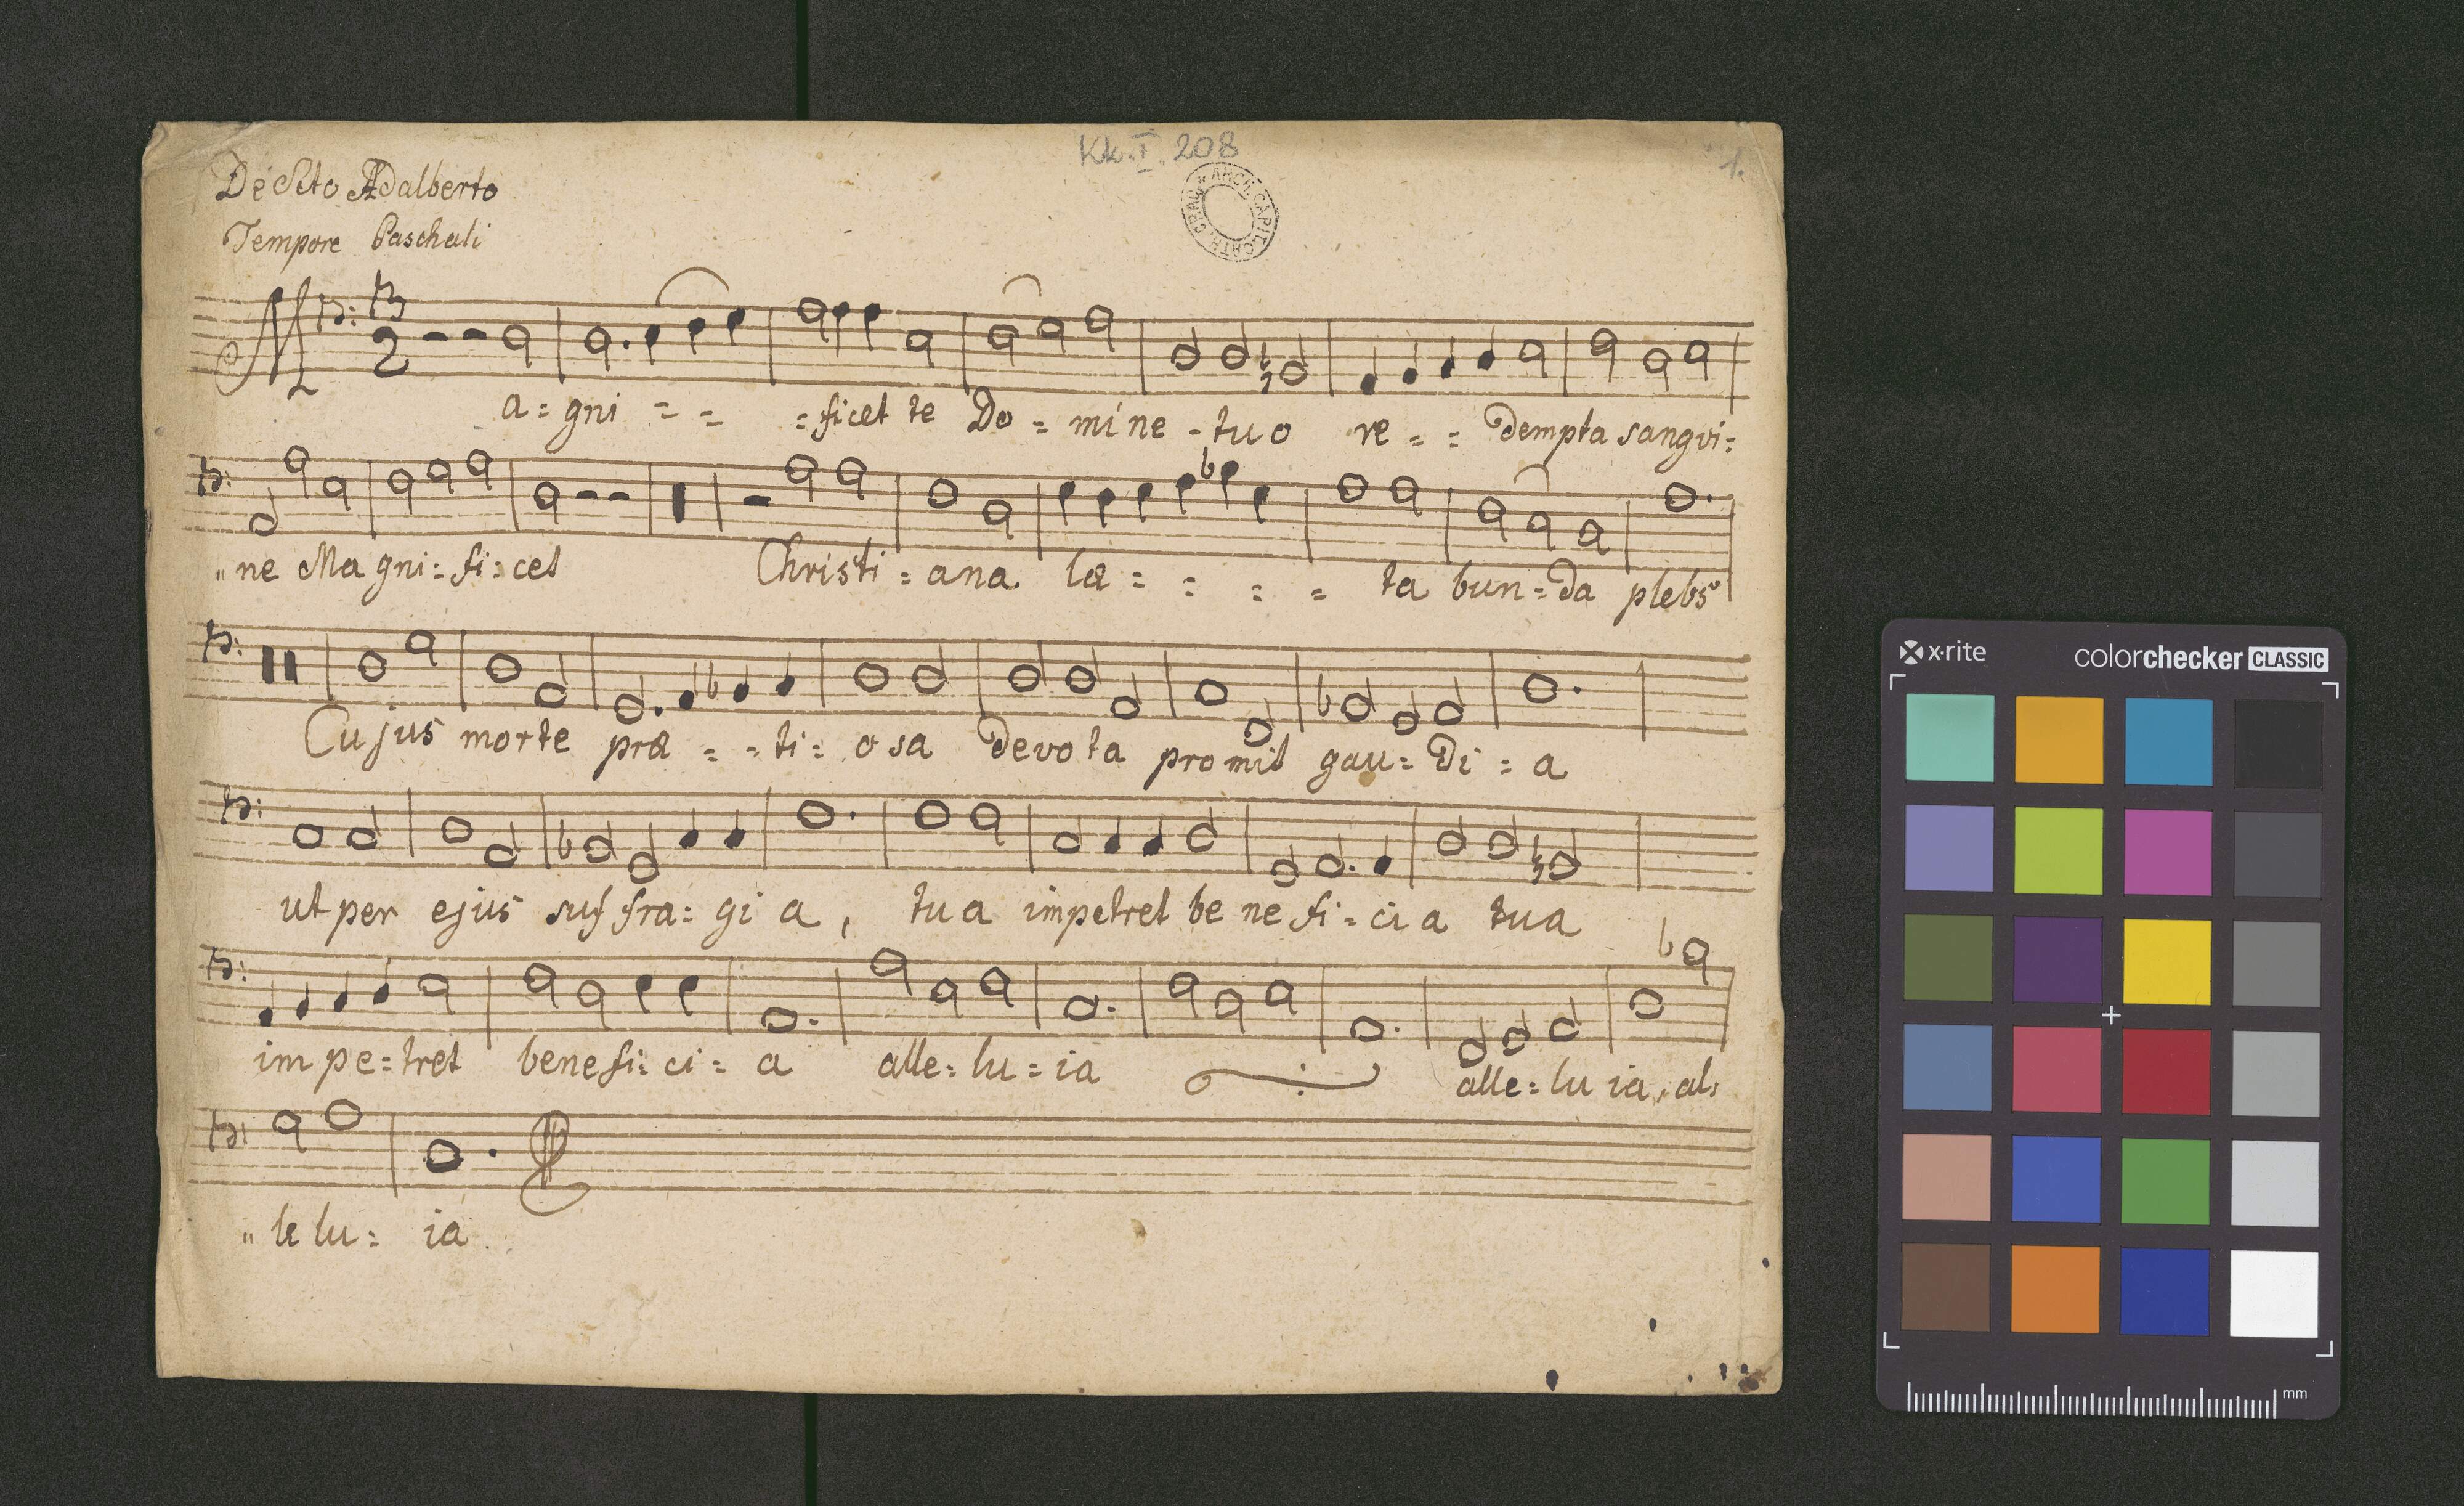 Kk.I.208
1.
De Scto Adalberto
Tempore Paschali
ARCH. CAPIT. CATH. CRAC.
3
2
Ma=gni - - =ficet te Do = mi ne - tuo re = = dempta sangvi=
"ne Magni=fi=cet Christi=ana læ = = = = ta bun=da plebs
Cujus morte præ = -ti= osa devota promit gau=di=a
ut per ejus suffra=gi a, tua impetret be ne fi=ci a tua
im pe=tret benefi=ci= a alle=lu=ia alle=lu ia, al,
"le lu= ia
x·rite
colorchecker CLASSIC
mm